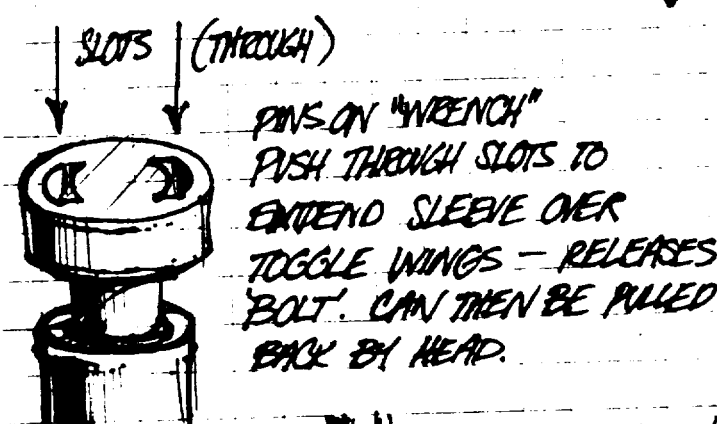 SLOTS (THROUGH)
PINS ON "WRENCH"
PUSH THROUGH SLOTS TO
EXTEND SLEEVE OVER
TOGGLE WINGS — RELEASES
'BOLT'. CAN THEN BE PULLED
BACK BY HEAD.